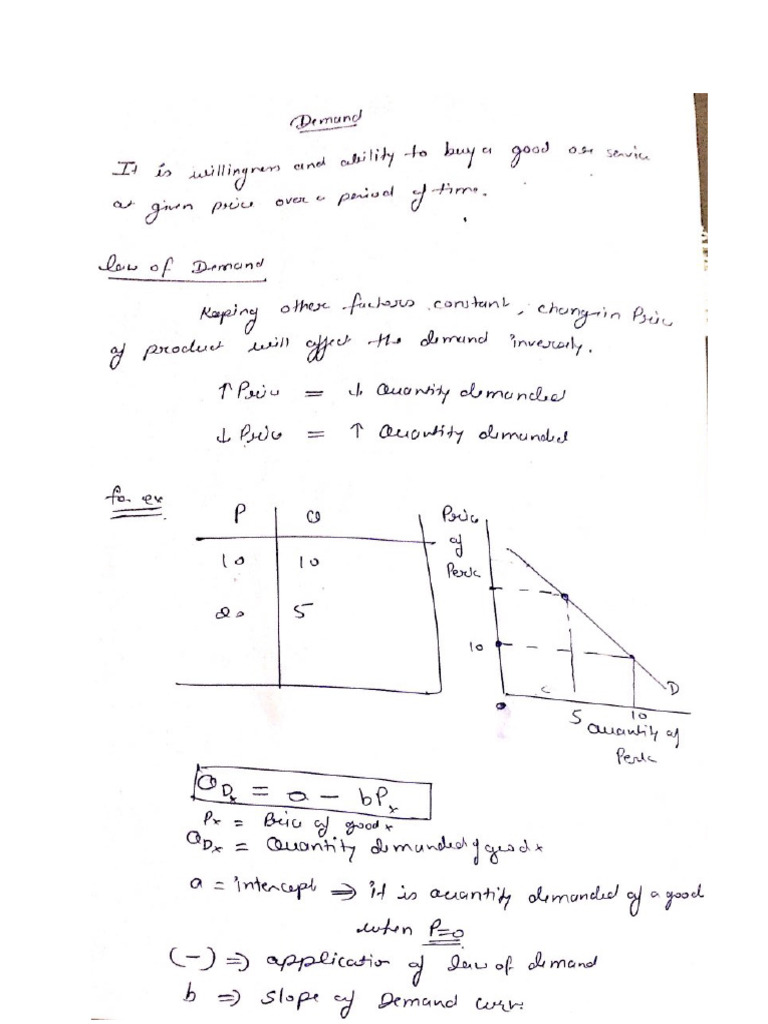 Demand
It is willingness and ability to buy a good or service
at given price over a period of time.
law of Demand
Keeping other factors constant, change in Price
of product will affect the demand inversely.
↑ Price = ↓ Quantity demanded
↓ Price = ↑ Quantity demanded
for ex
P Q
10 10
20 5
Price
of
10
D
5 10
Quantity of
Q_Dx = a - bPx
Px = Price of good x
Q_Dx = Quantity demanded of good x
a = intercept ⇒ it is quantity demanded of a good
when P=0
(-) ⇒ application of law of demand
b ⇒ slope of Demand curve